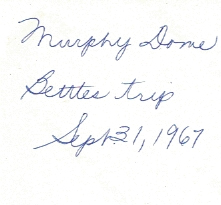 Murphy Dome
Bettles trip
Sept 31, 1967